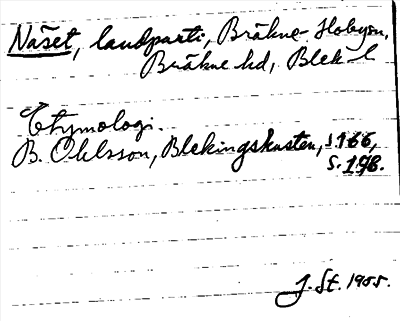 Näset, landparti, Bräkne-Hobysn,
Bräkne hd, Blek. l
Etymologi.
B. Ohlsson, Blekingskusten, s. 166,
s. 198.
J. St. 1955.